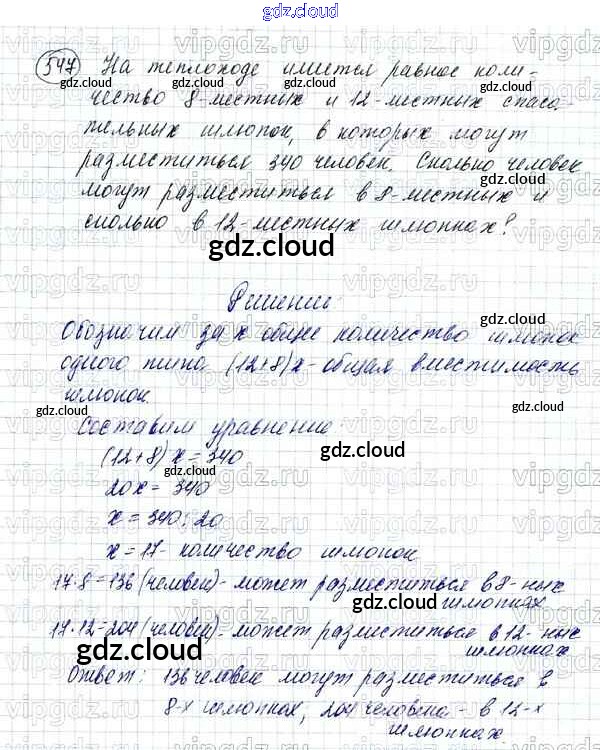 gdz.cloud
547 На теплоходе имеется равное коли-
чество 8-местных и 12-местных спаса-
тельных шлюпок, в которых могут
разместиться 340 человек. Сколько человек
могут разместиться в 8-местных и
сколько в 12-местных шлюпках?
gdz.cloud
Решение:
Обозначим за x общее количество шлюпок
одного типа (12+8)x - общая вместимость
шлюпок.
Составим уравнение:
(12+8)x = 340
20x = 340
x = 340:20
x = 17 - количество шлюпок
17·8=136 (человек) - может разместиться в 8-ных
шлюпках
17·12=204 (человек) - может разместиться в 12-ных
шлюпках
Ответ: 136 человек могут разместиться в
8-х шлюпках, 204 человека - в 12-х
шлюпках.